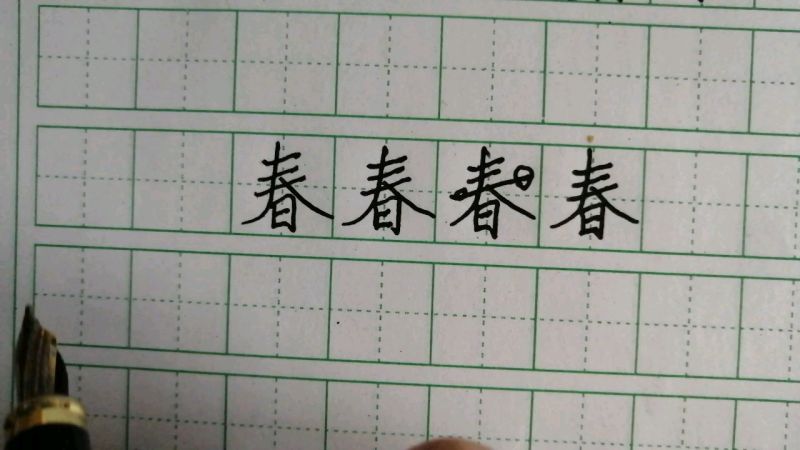 春春春春